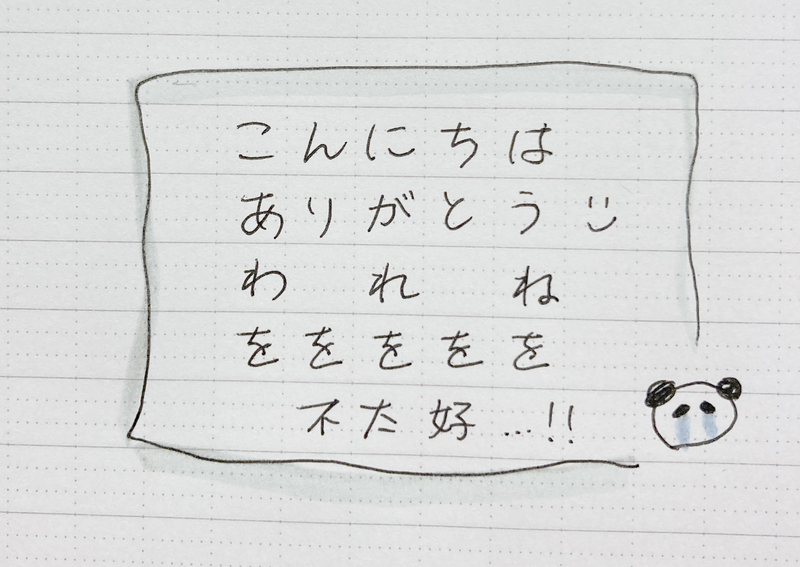 こんにちは
ありがとう
わ れ ね
ををををを
不た好…!!